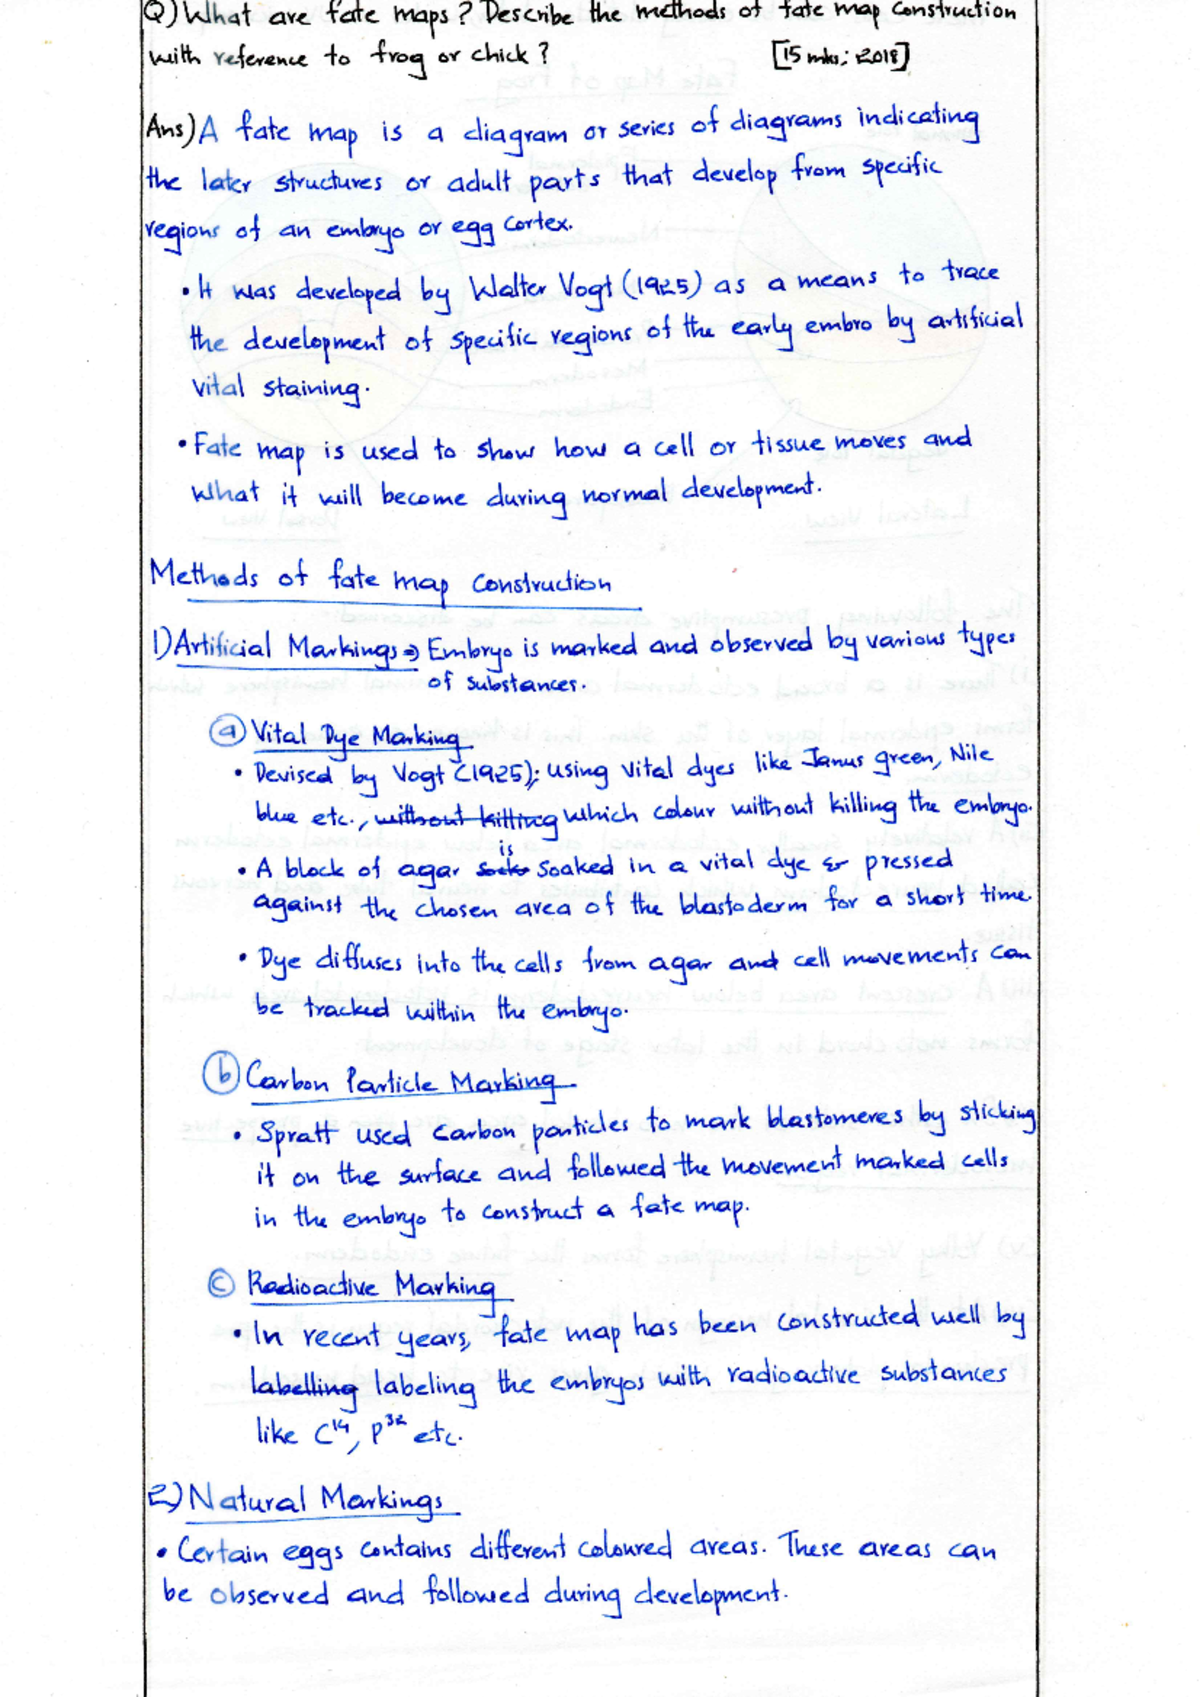 Q) What are fate maps? Describe the methods of fate map construction
with reference to frog or chick? [15 mks; 2018]
Ans) A fate map is a diagram or series of diagrams indicating
the later structures or adult parts that develop from specific
regions of an embryo or egg cortex.
• It was developed by Walter Vogt (1925) as a means to trace
the development of specific regions of the early embro by artificial
vital staining.
• Fate map is used to show how a cell or tissue moves and
what it will become during normal development.
Methods of fate map construction
1) Artificial Markings ⇒ Embryo is marked and observed by various types
of substances.
ⓐ Vital Dye Marking
• Devised by Vogt (1925); using vital dyes like Janus green, Nile
blue etc., without killing which colour without killing the embryo.
is
• A block of agar soaked in a vital dye & pressed
against the chosen area of the blastoderm for a short time.
• Dye diffuses into the cells from agar and cell movements can
be tracked within the embryo.
ⓑ Carbon Particle Marking
• Spratt used carbon particles to mark blastomeres by sticking
it on the surface and followed the movement marked cells
in the embryo to construct a fate map.
ⓒ Radioactive Marking
• In recent years, fate map has been constructed well by
labelling labeling the embryos with radioactive substances
like C¹⁴, P³² etc.
2) Natural Markings
• Certain eggs contains different coloured areas. These areas can
be observed and followed during development.